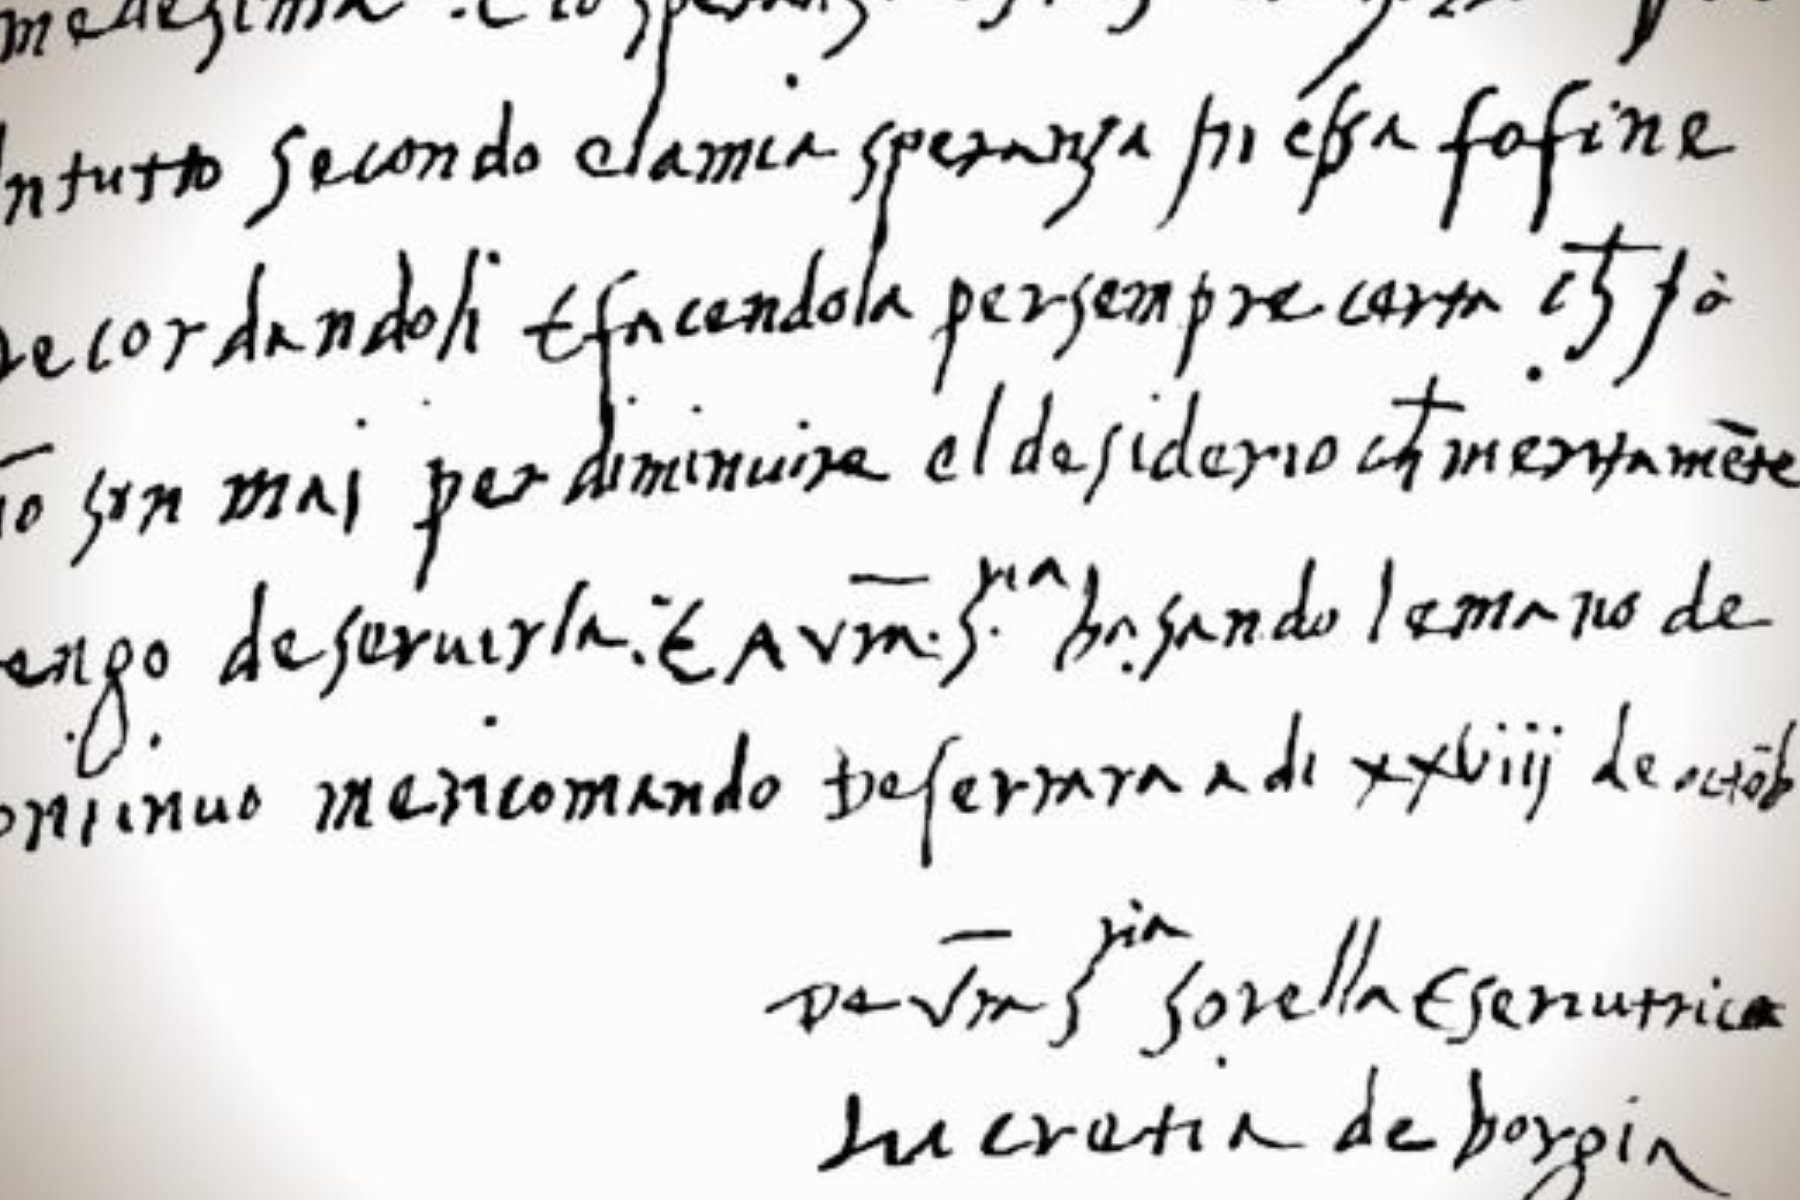 medesima
Intutto secondo elamia speranza pri essa fosine
recordandoli E facendola persempre certa ch
io son mai per diminuire el desiderio ch meritamēte
tengo deseruirla. E A vr̄a. S.ria basando lemano de
continuo mericomando De ferrara a di xxviiij de octōb
De vr̄a S ria sorella E seruitrice
Lucretia de borgia